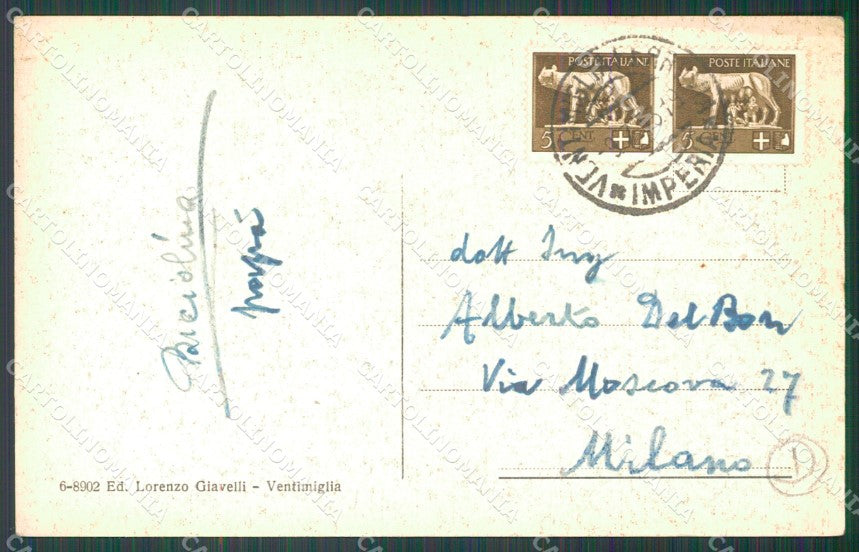 POSTE ITALIANE
5 CENT
POSTE ITALIANE
5
IMPERIA
papà
dott Ing
Alberto Del Bon
Via Moscova 27
Milano
6-8902 Ed. Lorenzo Giavelli - Ventimiglia
CARTOLINOMANIA